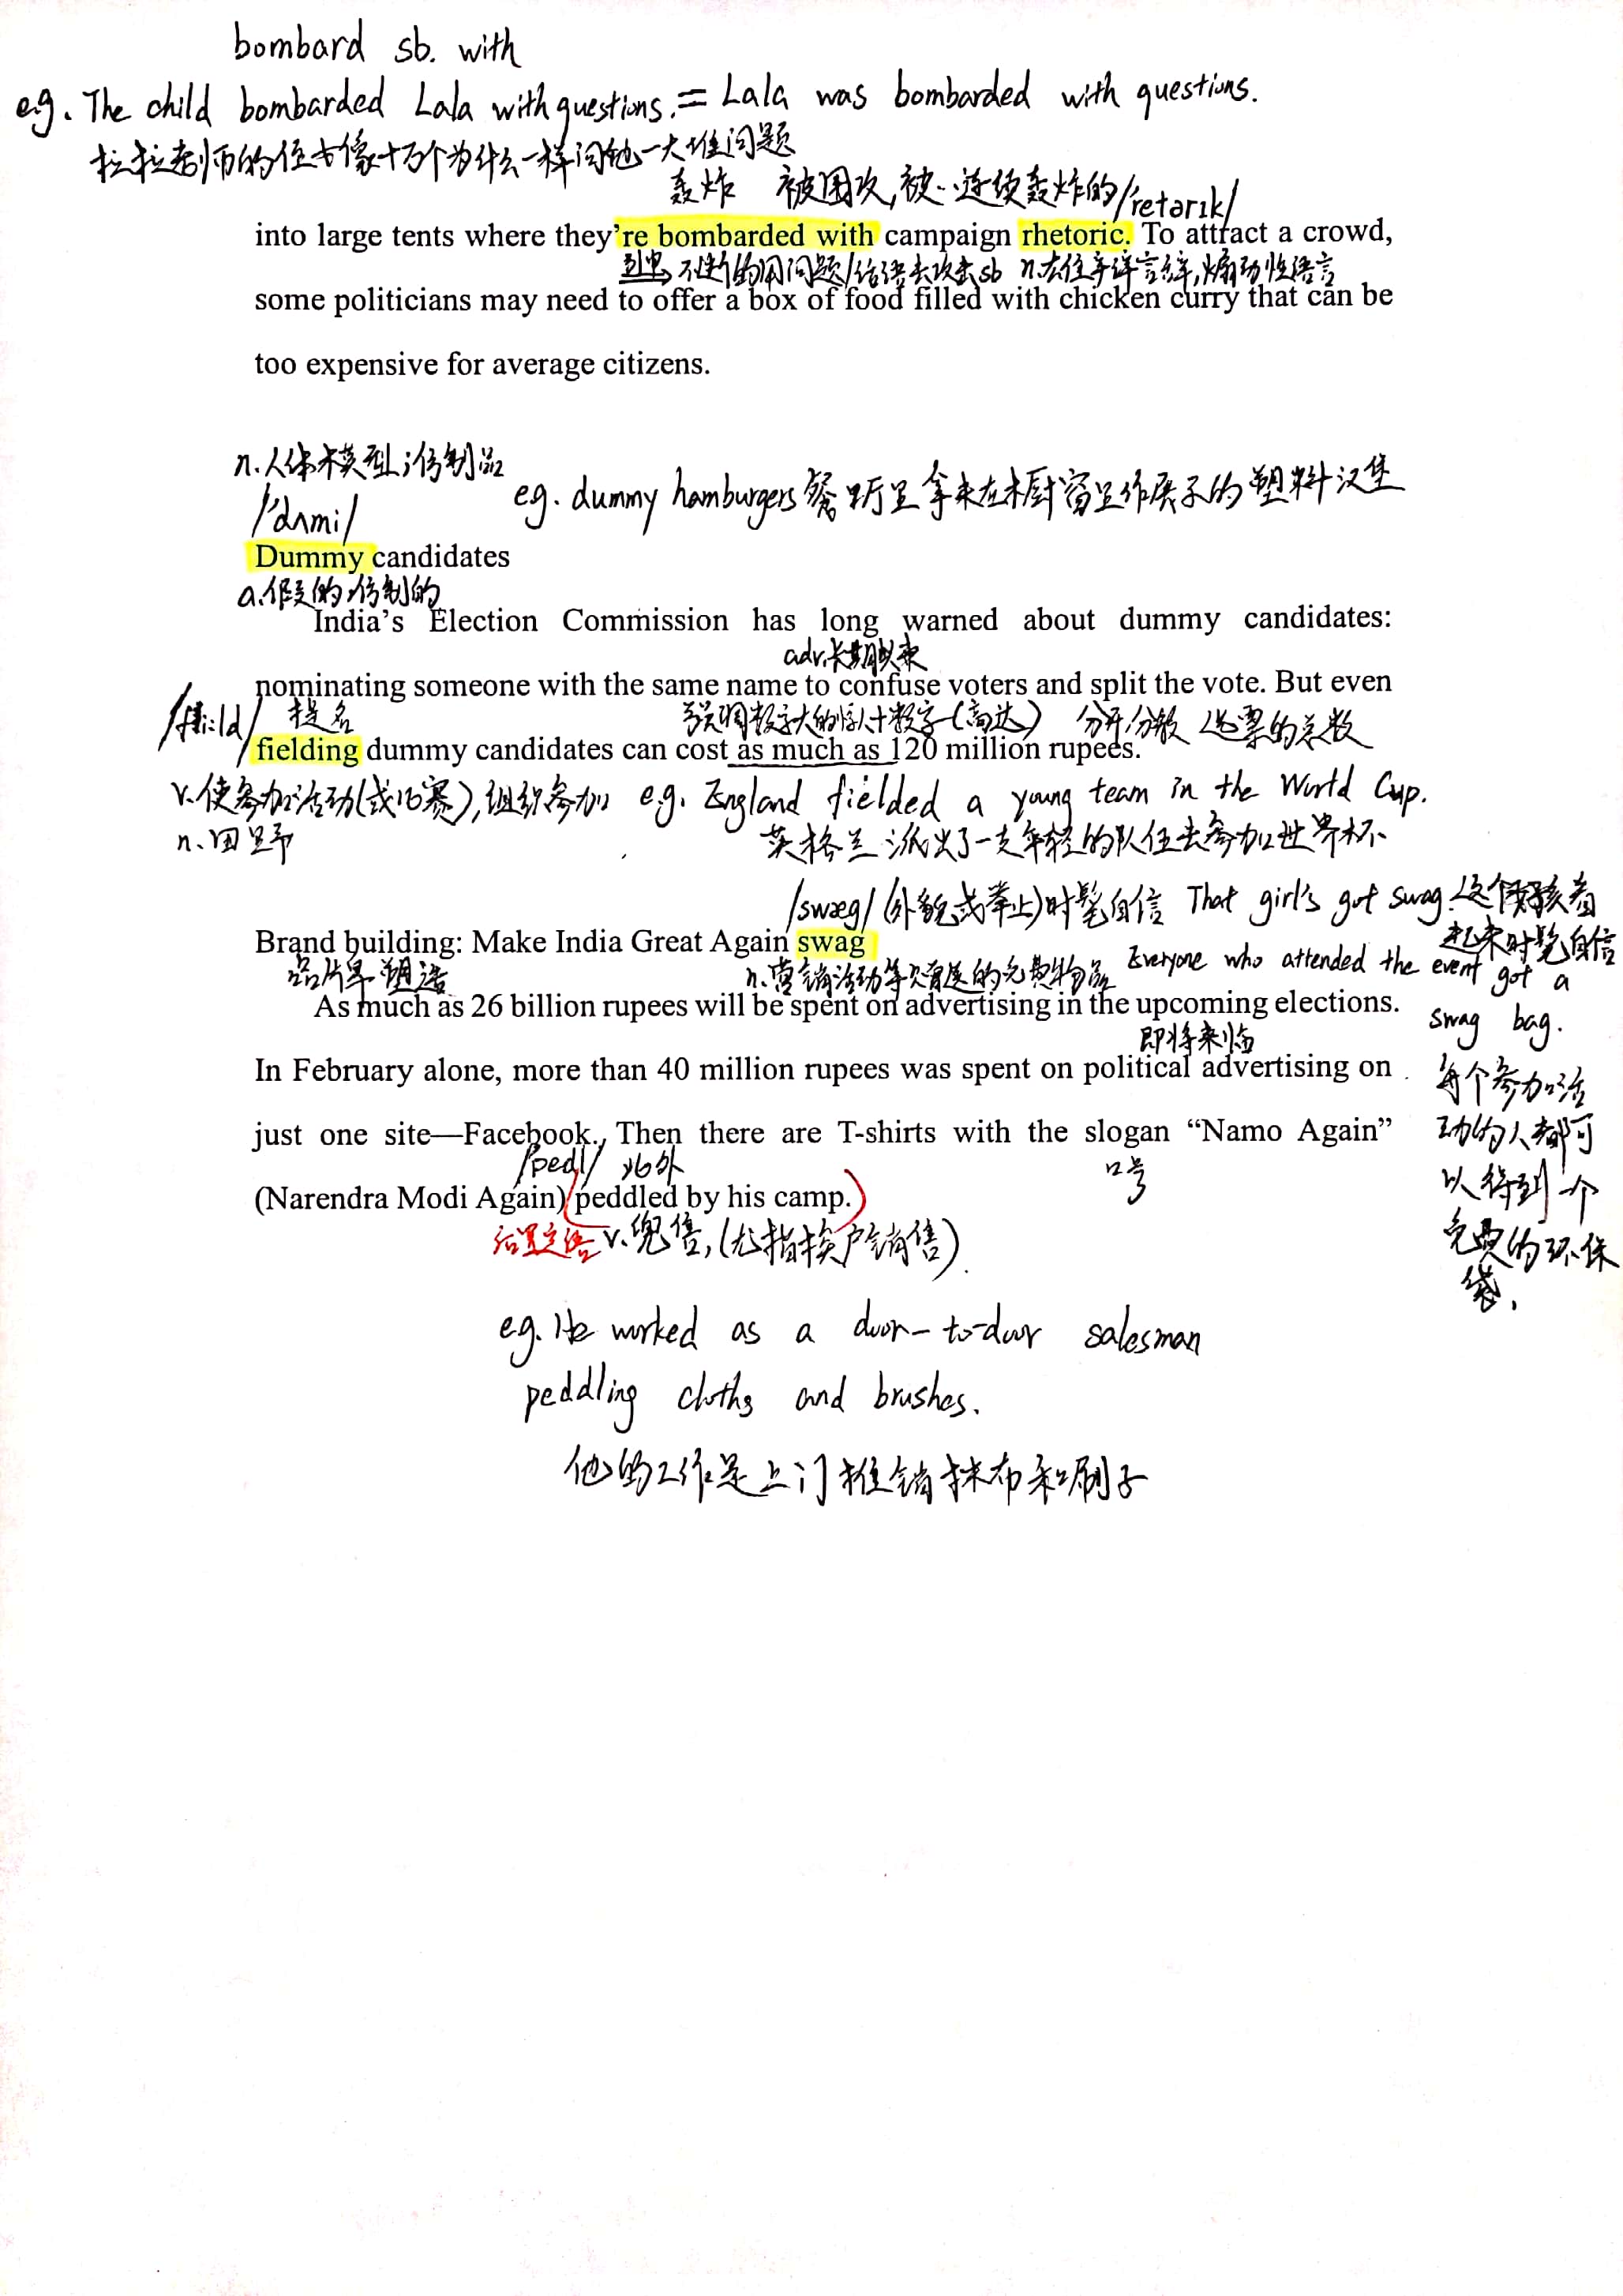 bombard sb. with
e.g. The child bombarded Lala with questions. = Lala was bombarded with questions.
拉拉老师的侄女像十万个为什么一样问他一大堆问题
轰炸 被围攻,被…连续轰炸的 /ˈretərɪk/
into large tents where they’re bombarded with campaign rhetoric. To attract a crowd,
不断的用问题/话语去攻击sb n.花言巧语,煽动性语言
some politicians may need to offer a box of food filled with chicken curry that can be
too expensive for average citizens.
n.人体模型;仿制品
/ˈdʌmi/
e.g. dummy hamburgers 餐厅里拿来在橱窗里作展示的塑料汉堡
Dummy candidates
a.假的,仿制的
India’s Election Commission has long warned about dummy candidates:
adv.长期以来
nominating someone with the same name to confuse voters and split the vote. But even
/fiːld/ 提名 强调数字大的惊人+数字(高达) 分开/分散 选票的总数
fielding dummy candidates can cost as much as 120 million rupees.
v.使参加活动(或比赛),组织参加 e.g. England fielded a young team in the World Cup.
n.田野 英格兰派出了一支年轻的队伍去参加世界杯
/swæg/ (外貌或举止)时髦自信 That girl's got swag. 这个女孩看起来时髦自信
Brand building: Make India Great Again swag
品牌 塑造 n.营销活动等次赠送的免费物品 Everyone who attended the event got a
swag bag.
As much as 26 billion rupees will be spent on advertising in the upcoming elections.
即将来临
In February alone, more than 40 million rupees was spent on political advertising on
每个参加活
动的人都可
以得到一个
免费的环保
袋.
just one site—Facebook. Then there are T-shirts with the slogan “Namo Again”
/pedl/ 此外 口号
(Narendra Modi Again) (peddled by his camp.)
后置定语 v.兜售,(尤指挨户销售).
e.g. He worked as a door-to-door salesman
peddling cloths and brushes.
他的工作是上门推销抹布和刷子